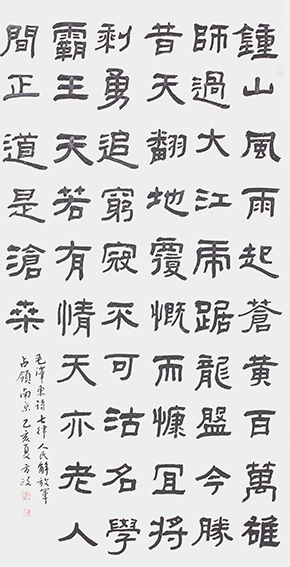 鍾山風雨起蒼黃百萬雄
師過大江虎踞龍盤今勝
昔天翻地覆慨而慷宜將
剩勇追窮寇不可沽名學
霸王天若有情天亦老人
間正道是滄桑
毛澤東詩七律人民解放軍
占領南京乙亥夏方政